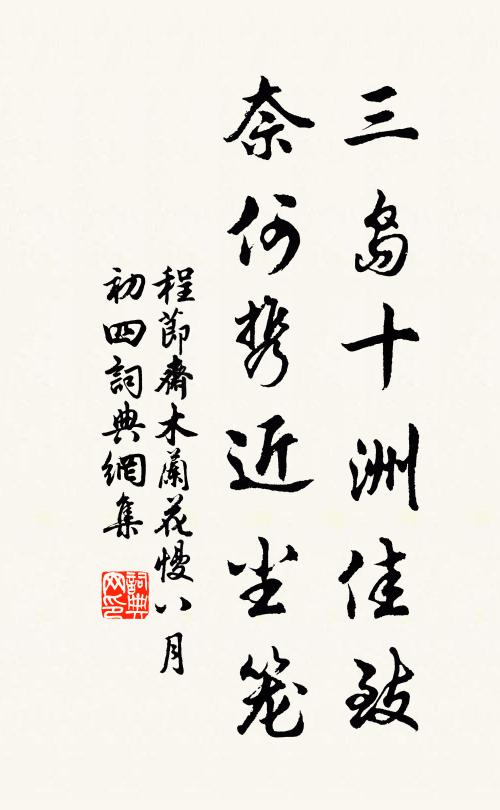 三岛十洲佳致
奈何携近尘笼
程節齋木蘭花慢八月
初四詞典網集
詞典
网印